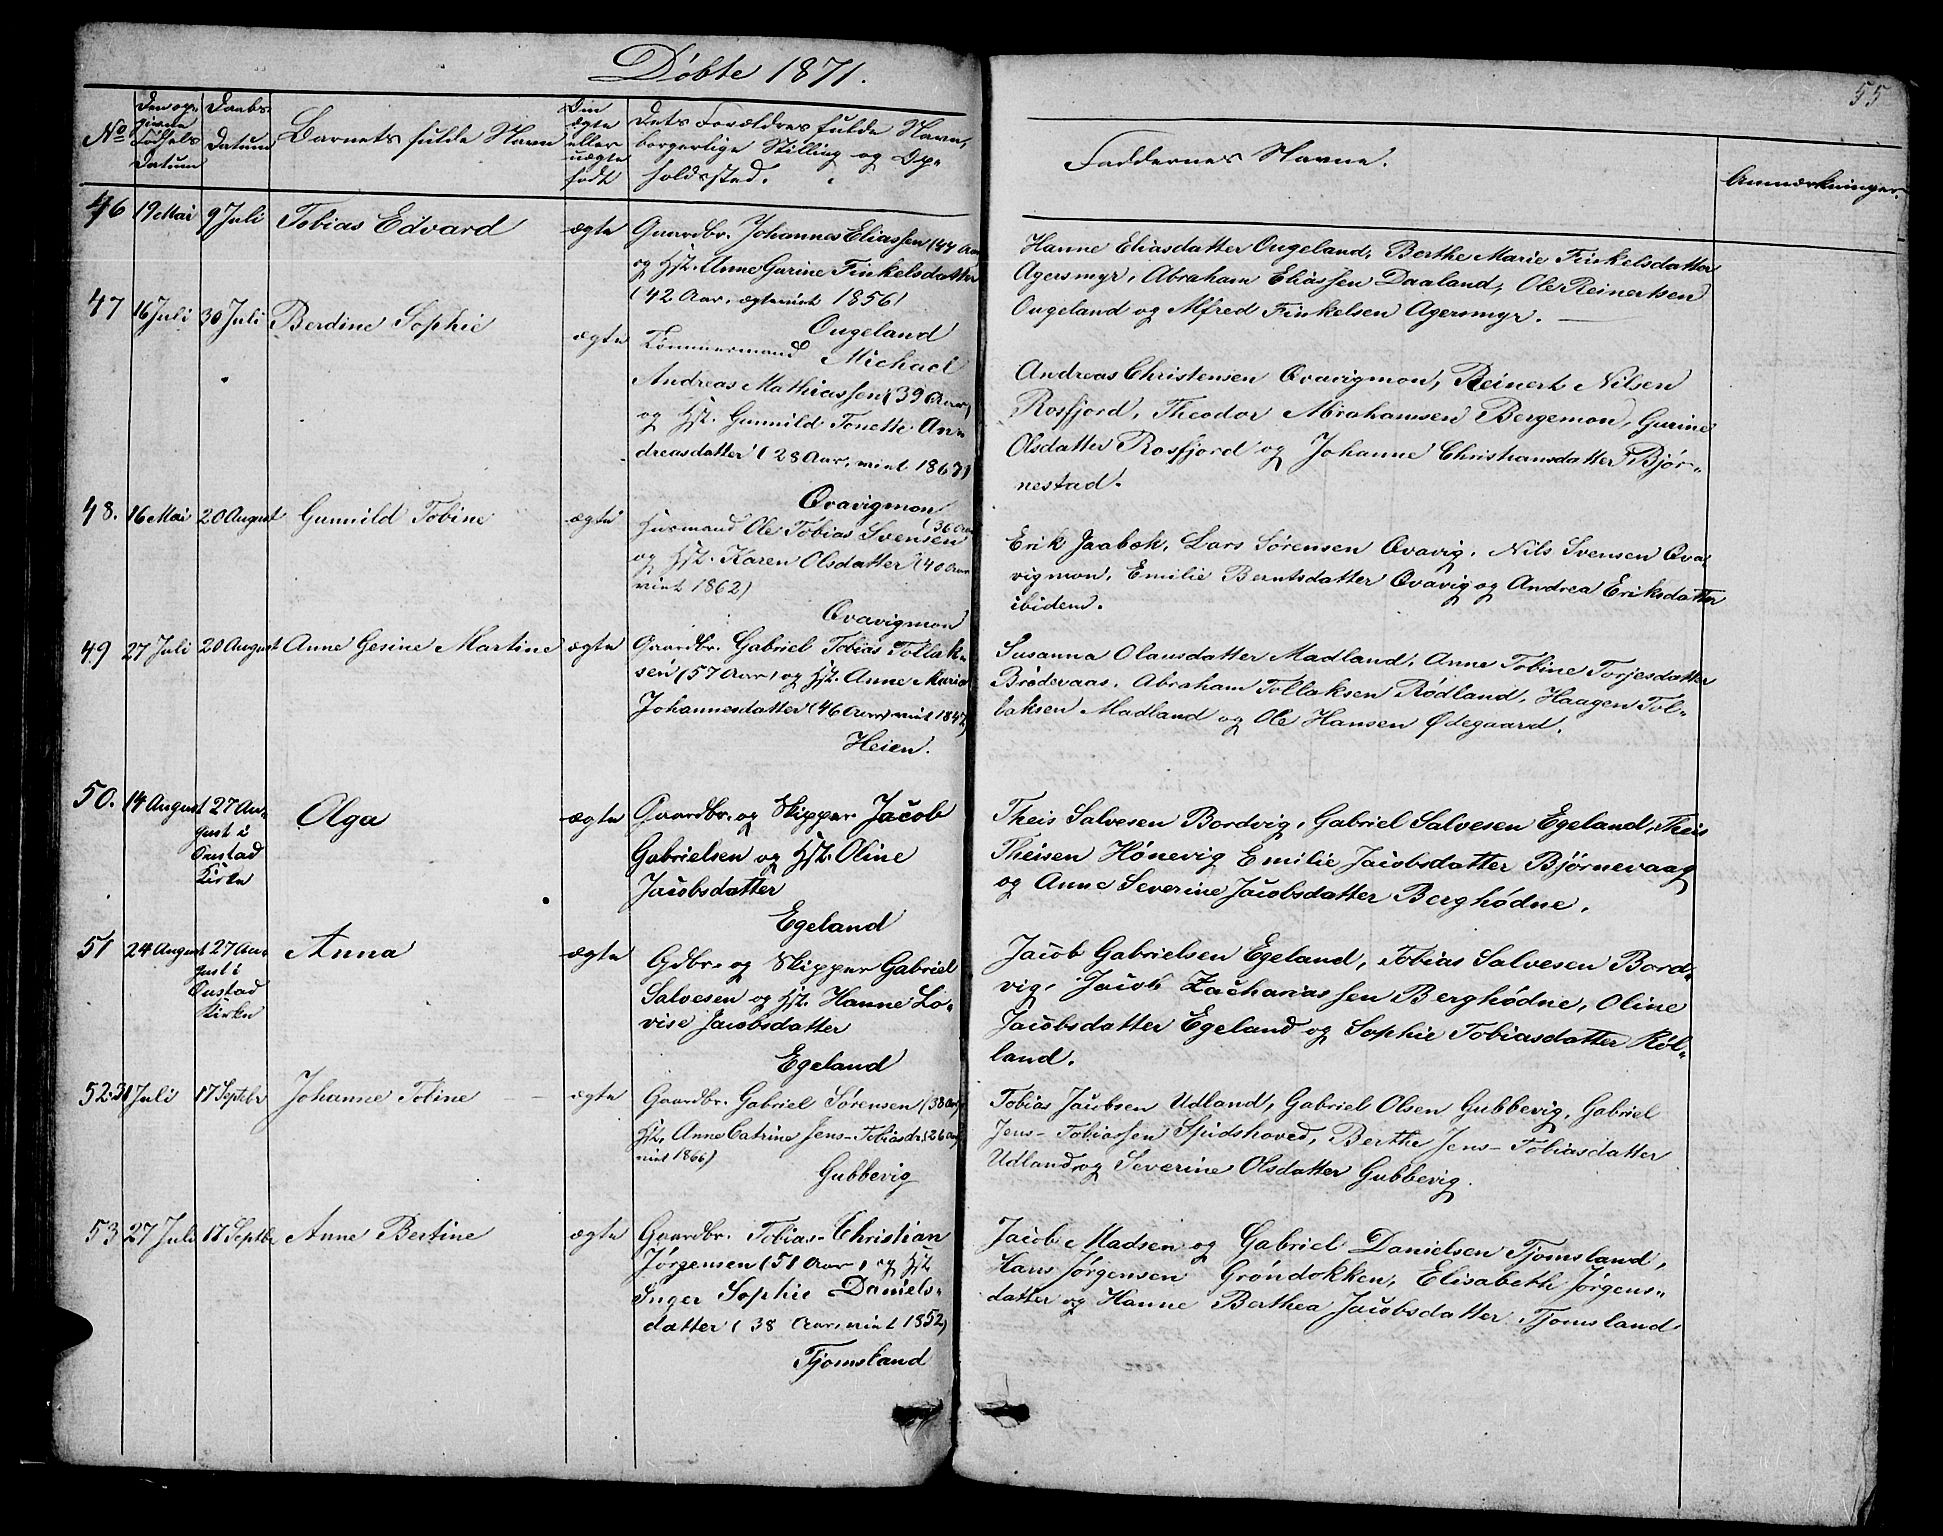 Døbte 1871.
55
No
Den op-
givne
Fødsels
Datum
Daabs-
Datum
Barnets fulde Navn
Om
ægte
eller
uægte
født
Dets Forældres fulde Navn,
borgerlige Stilling og Op-
holdssted.
Faddernes Navne.
Anmærkninger.
46 19 Mai 9 Juli Tobias Edvard ægte
Gaardbr. Johannes Eliassen (44 Aar
og Hst. Anne Gurine Finkelsdatter
(42 Aar, ægteviet 1856)
Ougeland
Hanne Eliasdatter Ougeland, Berthe Marie Finkelsdatter
Agersmyr, Abraham Eliassen Daaland, Ole Reinertsen
Ougeland og Alfred Finkelsen Agersmyr.
47 16 Juli 30 Juli Berdine Sophie ægte
Tømmermand Michael
Andreas Mathiassen (39 Aar)
og Hst. Gunnild Tonette An-
dreasdatter (28 Aar, viet 1867)
Qvavigmon
Andreas Christensen Qvavigmon, Reinert Nilsen
Rosfjord, Theodor Abrahamsen Bergemon, Gurine
Olsdatter Rosfjord og Johanne Christiansdatter Bjør-
nestad.
48. 16 Mai 20 August Gunnild Tobine ægte
Husmand Ole Tobias Svensen (36 Aar
og Hst. Karen Olsdatter (40 Aar
viet 1862)
Qvavigmon
Erik Jaabæk, Lars Sørensen Qvavig, Nils Svensen Qva-
vigmon, Emilie Berntsdatter Qvavig og Andrea Eriksdatter
ibidem.
49 27 Juli 20 August Anne Gesine Martine ægte
Gaardbr. Gabriel Tobias Tollak-
sen (57 Aar) og Hst. Anne Maria
Johannesdatter (46 Aar) viet 1847)
Heien.
Susanna Olausdatter Madland, Anne Tobine Torjesdatter
Brødevaas, Abraham Tollaksen Rødland, Haagen Tol-
laksen Madland og Ole Hansen Ødegaard.
50. 14 August 27 Au-
gust i
Onstad
Kirke
Olga ægte
Gaardbr. og Skipper Jacob
Gabrielsen og Hst. Oline
Jacobsdatter
Egeland
Theis Salvesen Bordvig, Gabriel Salvesen Egeland, Theis
Theisen Hønevig Emilie Jacobsdatter Bjørnevaag
og Anne Severine Jacobsdatter Berghødne.
51 24 August 27 Au-
gust i
Onstad
Kirke
Anna ægte
Gdbr. og Skipper Gabriel
Salvesen og Hst. Hanne Lo-
vise Jacobsdatter
Egeland
Jacob Gabrielsen Egeland, Tobias Salvesen Bord-
vig, Jacob Zachariassen Berghødne, Oline
Jacobsdatter Egeland og Sophie Tobiasdatter Røl-
land.
52. 31 Juli 17 Septbr Johanne Tobine ægte
Gaardbr. Gabriel Sørensen (38 Aar,
Hst. Anne Catrine Jens-Tobiasdr. (26 Aar,
viet 1866)
Gubbevig
Tobias Jacobsen Udland, Gabriel Olsen Gubbevig, Gabriel
Jens-Tobiassen Spidshoved, Berthe Jens-Tobiasdatter
Udland og Severine Olsdatter Gubbevig.
53 27 Juli 17 Septbr Anne Bertine ægte
Gaardbr. Tobias-Christian
Jørgensen (51 Aar) og Hst
Inger Sophie Daniels-
datter (38 Aar, viet 1852)
Tjomsland
Jacob Madsen og Gabriel Danielsen Tjomsland,
Hans Jørgensen Grøndokken, Elisabeth Jørgens-
datter og Hanne Berthea Jacobsdatter Tjomsland